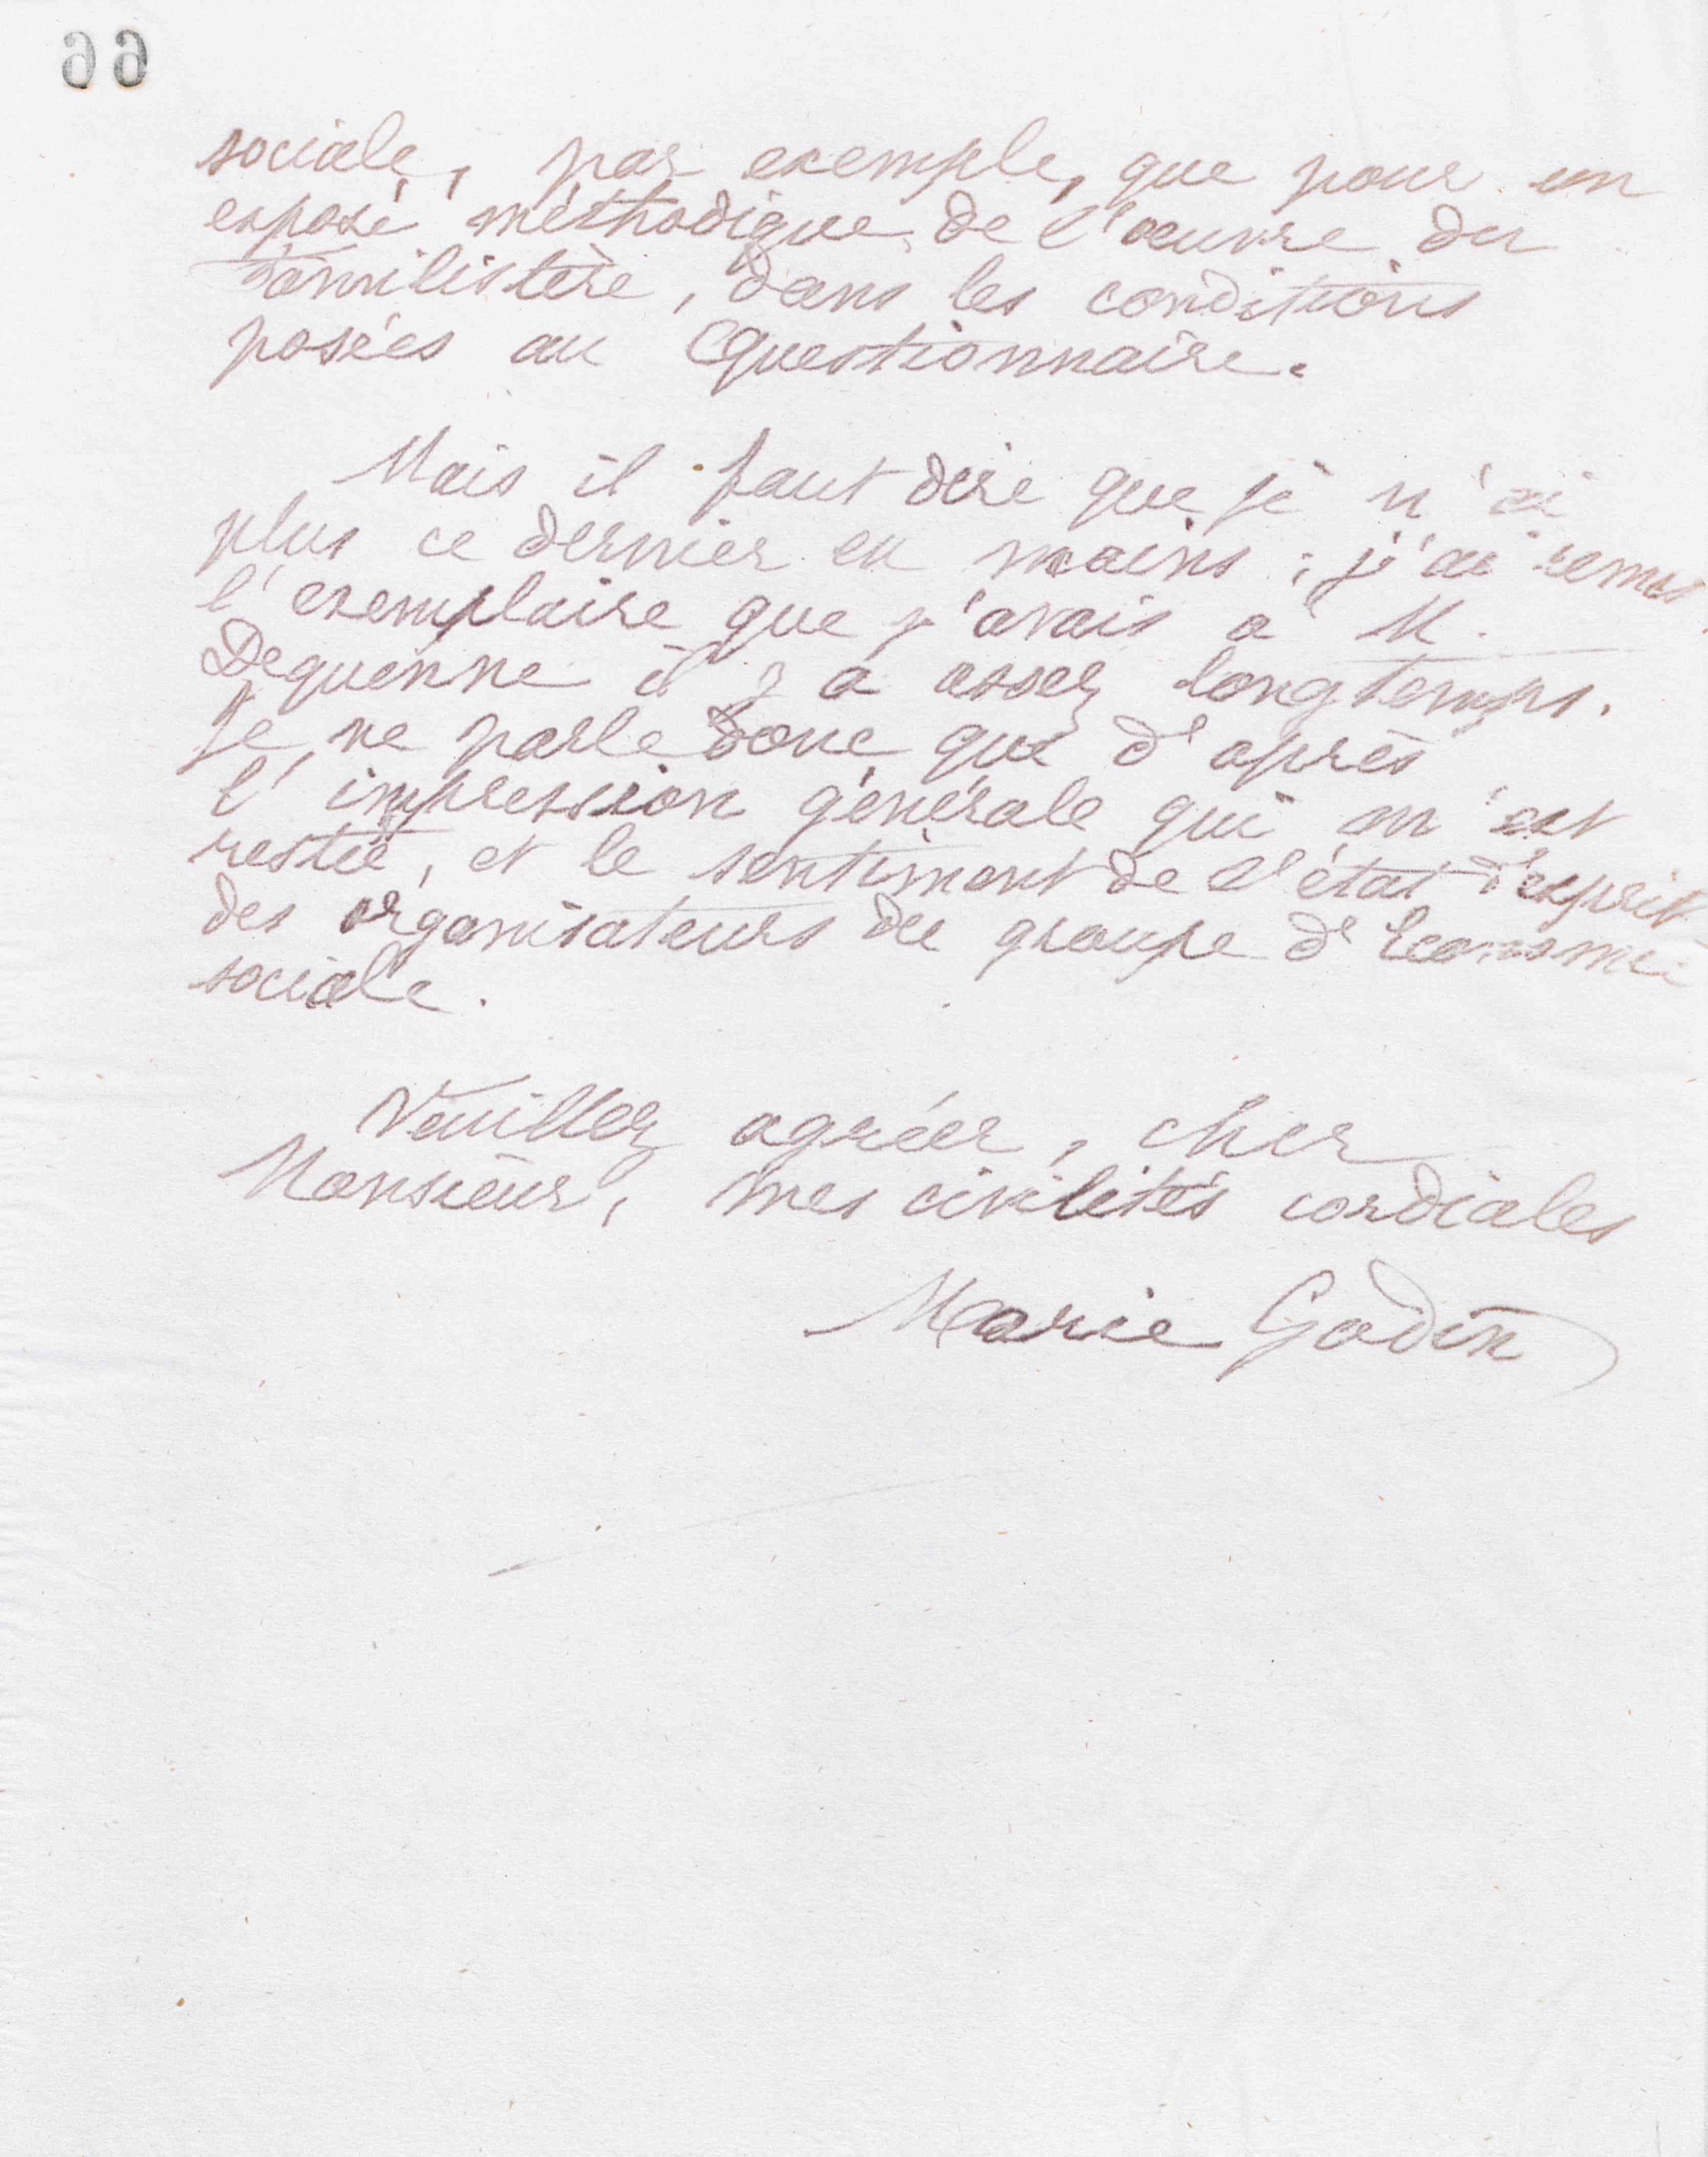 66
sociale, par exemple, que pour un
exposé méthodique de l'œuvre du
Familistère, dans les conditions
posées au Questionnaire.
Mais il faut dire que je n'ai
plus ce dernier en mains ; j'ai remis
l'exemplaire que j'avais à M.
Dequenne il y a assez longtemps.
Je ne parle donc que d'après
l'impression générale qui m'est
restée, et le sentiment de l'état d'esprit
des organisateurs du groupe d'Economie
sociale.
Veuillez agréer, cher
Monsieur, mes civilités cordiales
Marie Godin